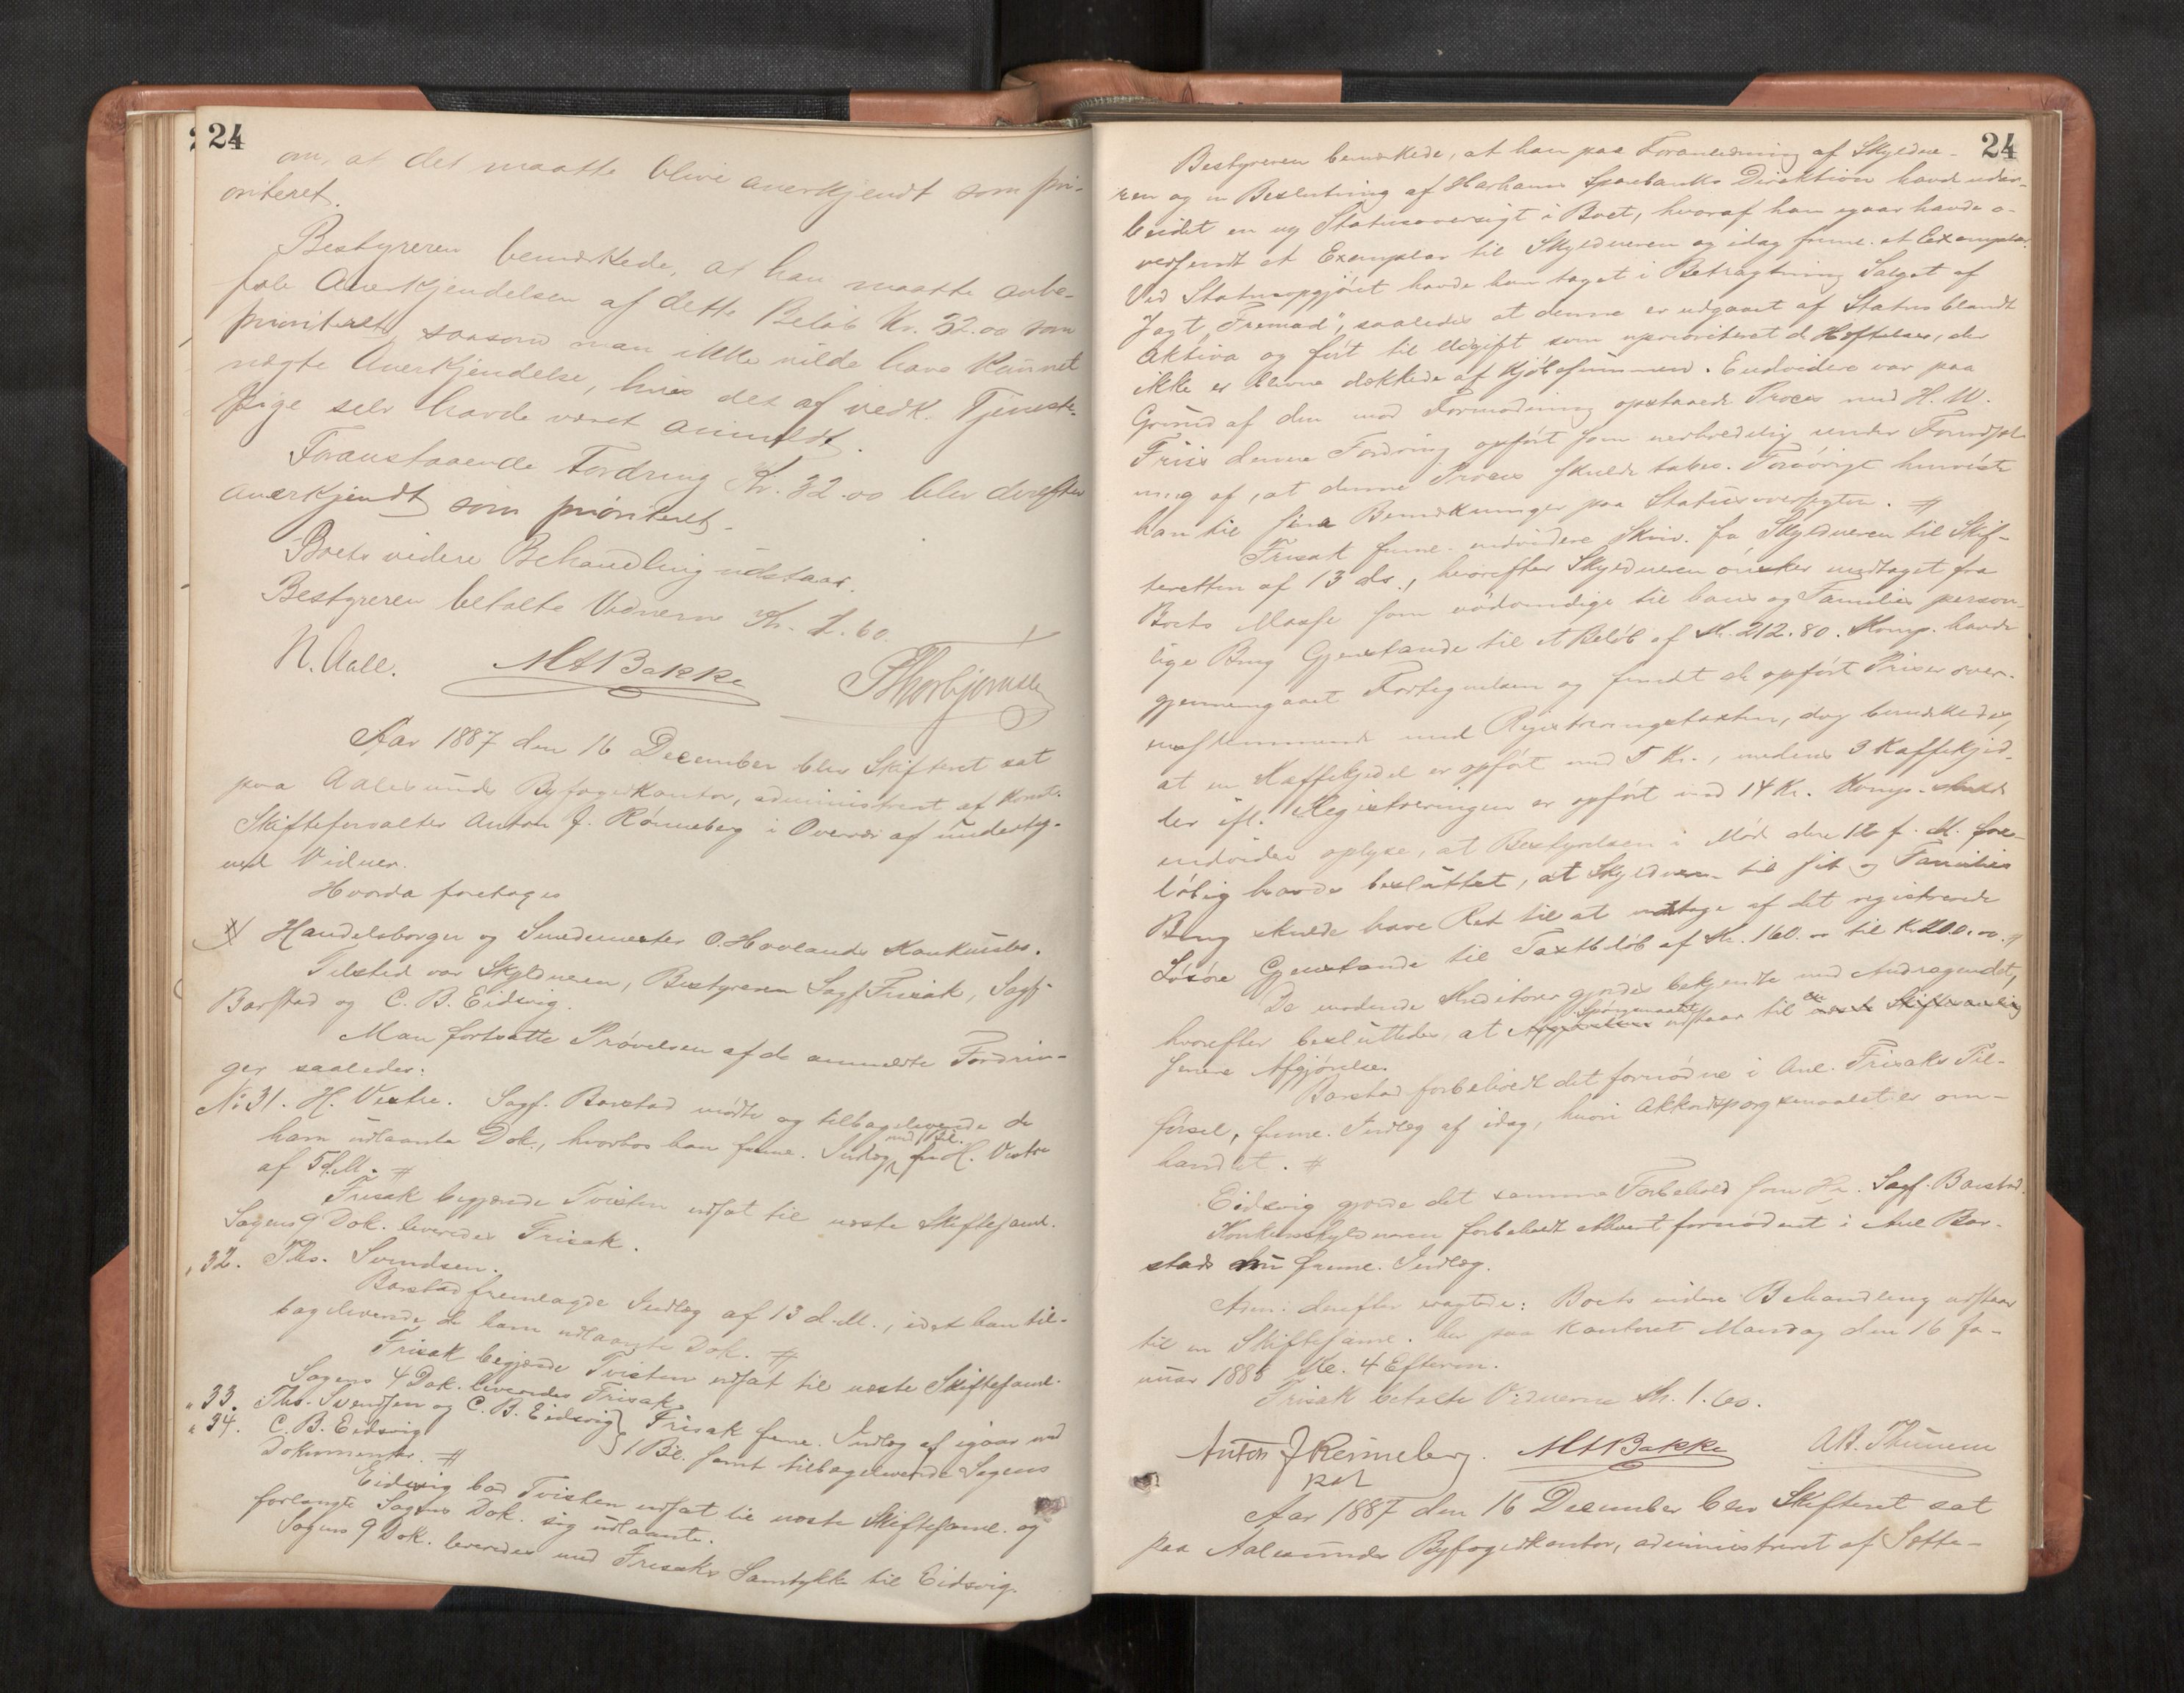 24
om, at det maatte blive anerkjendt som pri-
oriteret.
Bestyreren bemærkede, at han maatte anbe-
fale Anerkjendelsen af dette Beløb Kr. 32.00 som
prioriteret, saasom man ikke vilde have kunnet
nægte Anerkjendelse, hvis det af vedk. Tjeneste-
pige selv havde været anmeldt.
Foranstaaende Fordring Kr. 32.00 blev derefter
anerkjendt som prioriteret.
Boets videre Behandling udstaar.
Bestyreren betalte Vidnerne Kr. 1.60.
N. Aall. M A Bakke Thorbjørnsen
Aar 1887 den 16 December blev Skifteret sat
paa Aalesunds Byfogedkontor, administreret af Konst.
Skifteforvalter Anton J. Rønneberg i Overvær af underteg-
nede Vidner.
Hvorda foretoges
Handelsborger og Smedemester O. Hovlands Konkursbo.
Tilsted var Skyldneren, Bestyreren Sagf. Frisak, Sagf.
Barstad og C. B. Eidsvig.
Man fortsatte Prøvelsen af de anmeldte Fordrin-
ger saaledes:
No 31. H. Vestre. Sagf. Barstad mødte og tilbageleverede de
ham udlaante Dok., hvorhos han freml. Indlæg med 1 Bil. fra H. Vestre
af 5 d. M. #
Frisak begjærede Tvisten udsat til næste Skiftesaml.
Sagens 9 Dok. leveredes Frisak.
" 32. Ths. Svendsen.
Barstad fremlagde Indlæg af 13 d. M., idet han til-
bageleverede de ham udlaante Dok. #
Frisak begjærede Tvisten udsat til næste Skiftesaml.
Sagens 4 Dok. leveredes Frisak.
" 33. Ths. Svendsen og C. B. Eidsvig
" 34. C. B. Eidsvig
Frisak freml. Indlæg af igaar med
1 Bil. samt tilbageleverede Sagens
Dokumenter. #
Eidsvig bad Tvisten udsat til næste Skiftesaml. og
forlangte Sagens Dok. sig udlaante.
Sagens 9 Dok. leveredes med Frisaks Samtykke til Eidsvig.
24
Bestyreren bemærkede, at han paa Foranledning af Skyldne-
ren og en Beslutning af Harhams Sparebanks Direktion havde udar-
beidet en ny Statusoversigt i Boet, hvoraf han igaar havde o-
versendt et Exemplar til Skyldneren og idag freml. et Exemplar.
Ved Statusopgjøret havde han taget i Betragtning Salget af
Jagt "Fremad", saaledes at denne er udgaaet af Status blandt
Aktiva og ført til Udgift som uprioriteret de Hæftelser, der
ikke er blevne dækkede af Kjøbesummen. Endvidere var paa
Grund af den mod Formodning opstaaede Proces med H. W.
Friis denne Fordring opført som uerholdelig under Forudsæt-
ning af, at denne Proces skulde tabes. Forøvrigt henviste
han til sine Bemærkninger paa Statusoversigten. #
Frisak freml. endvidere Skriv. fra Skyldneren til Skif-
teretten af 13 ds., hvorefter Skyldneren ønsker undtaget fra
Boets Masse som nødvendige til hans og Families person-
lige Brug Gjenstande til et Beløb af Kr. 212.80. Komp. havde
gjennemgaaet Fortegnelsen og fundet de opført Priser over-
ensstemmende med Registreringstaxten, dog bemærkedes,
at en Kaffekjedel er opført med 5 Kr., medens 3 Kaffekjed-
ler ifl. Registreringen er opført med 14 Kr. Komp. skulde
endvidere oplyse, at Bestyrelsen i Møde den 12 f. M. fore-
løbig havde besluttet, at Skyldneren til sit og Families
Brug skulde have Ret til at udtage af det registrerede
Løsøre Gjenstande til Taxtbeløb af Kr. 160.00 til Kr. 200.00. #
De mødende Kreditorer gjordes bekjendte med Andragendet,
hvorefter besluttedes, at Spørgsmaalet udstaar til
senere Afgjørelse.
Barstad forbeholdt det fornødne i Anl. Frisaks Til-
førsel, freml. Indlæg af idag, hvori Akkordspørgsmaalet er om-
handlet. #
Eidsvig gjorde det samme Forbehold som Hr. Sagf. Barstad.
Konkursskyldneren forbeholdt Alt fornødent i Anl. Bar-
stads nu freml. Indlæg.
Adm. derefter eragtede: Boets videre Behandling udstaar
til en Skiftesaml. her paa Kontoret Mandag den 16 Ja-
nuar 1888 Kl. 4 Efterm.
Frisak betalte Vidnerne Kr. 1.60.
Anton J Rønneberg. M A Bakke A. B. Thunem
kst
Aar 1887 den 16 December blev Skifteret sat
paa Aalesunds Byfogedkontor, administreret af Sætte-